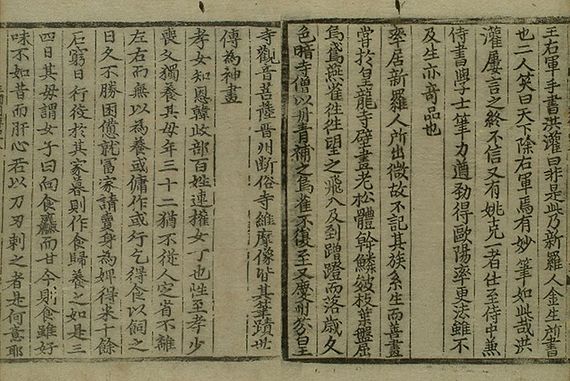 王右軍手書洪灌曰非是此乃新羅人金生所書
也二人笑曰天下除右軍焉有妙筆如此哉洪
灌屢言之終不信又有姚克一者仕至侍中兼
侍書學士筆力遒勁得歐陽率更法雖不
及生亦奇品也
率居新羅人所出微故不記其族系生而善畫
嘗於皇龍寺壁畫老松體幹鱗皴枝葉盤屈
烏鳶燕雀往往望之飛入及到蹭蹬而落歲久
色暗寺僧以丹青補之烏雀不復至又慶州芬皇
寺觀音菩薩晋州断俗寺維摩像皆其筆蹟世
傳為神畫
孝女知恩韓歧部百姓連權女子也性至孝少
喪父獨養其母年三十二猶不從人定省不離
左右而無以為養或傭作或行乞得食以飼之
日久不勝困憊就冨家請賣身為婢得米十餘
石窮日行役於其家暮則作食歸養之如是三
四日其母謂女子曰向食麤而甘今則食雖好
味不如昔而肝心若以刀刃刺之者是何意耶